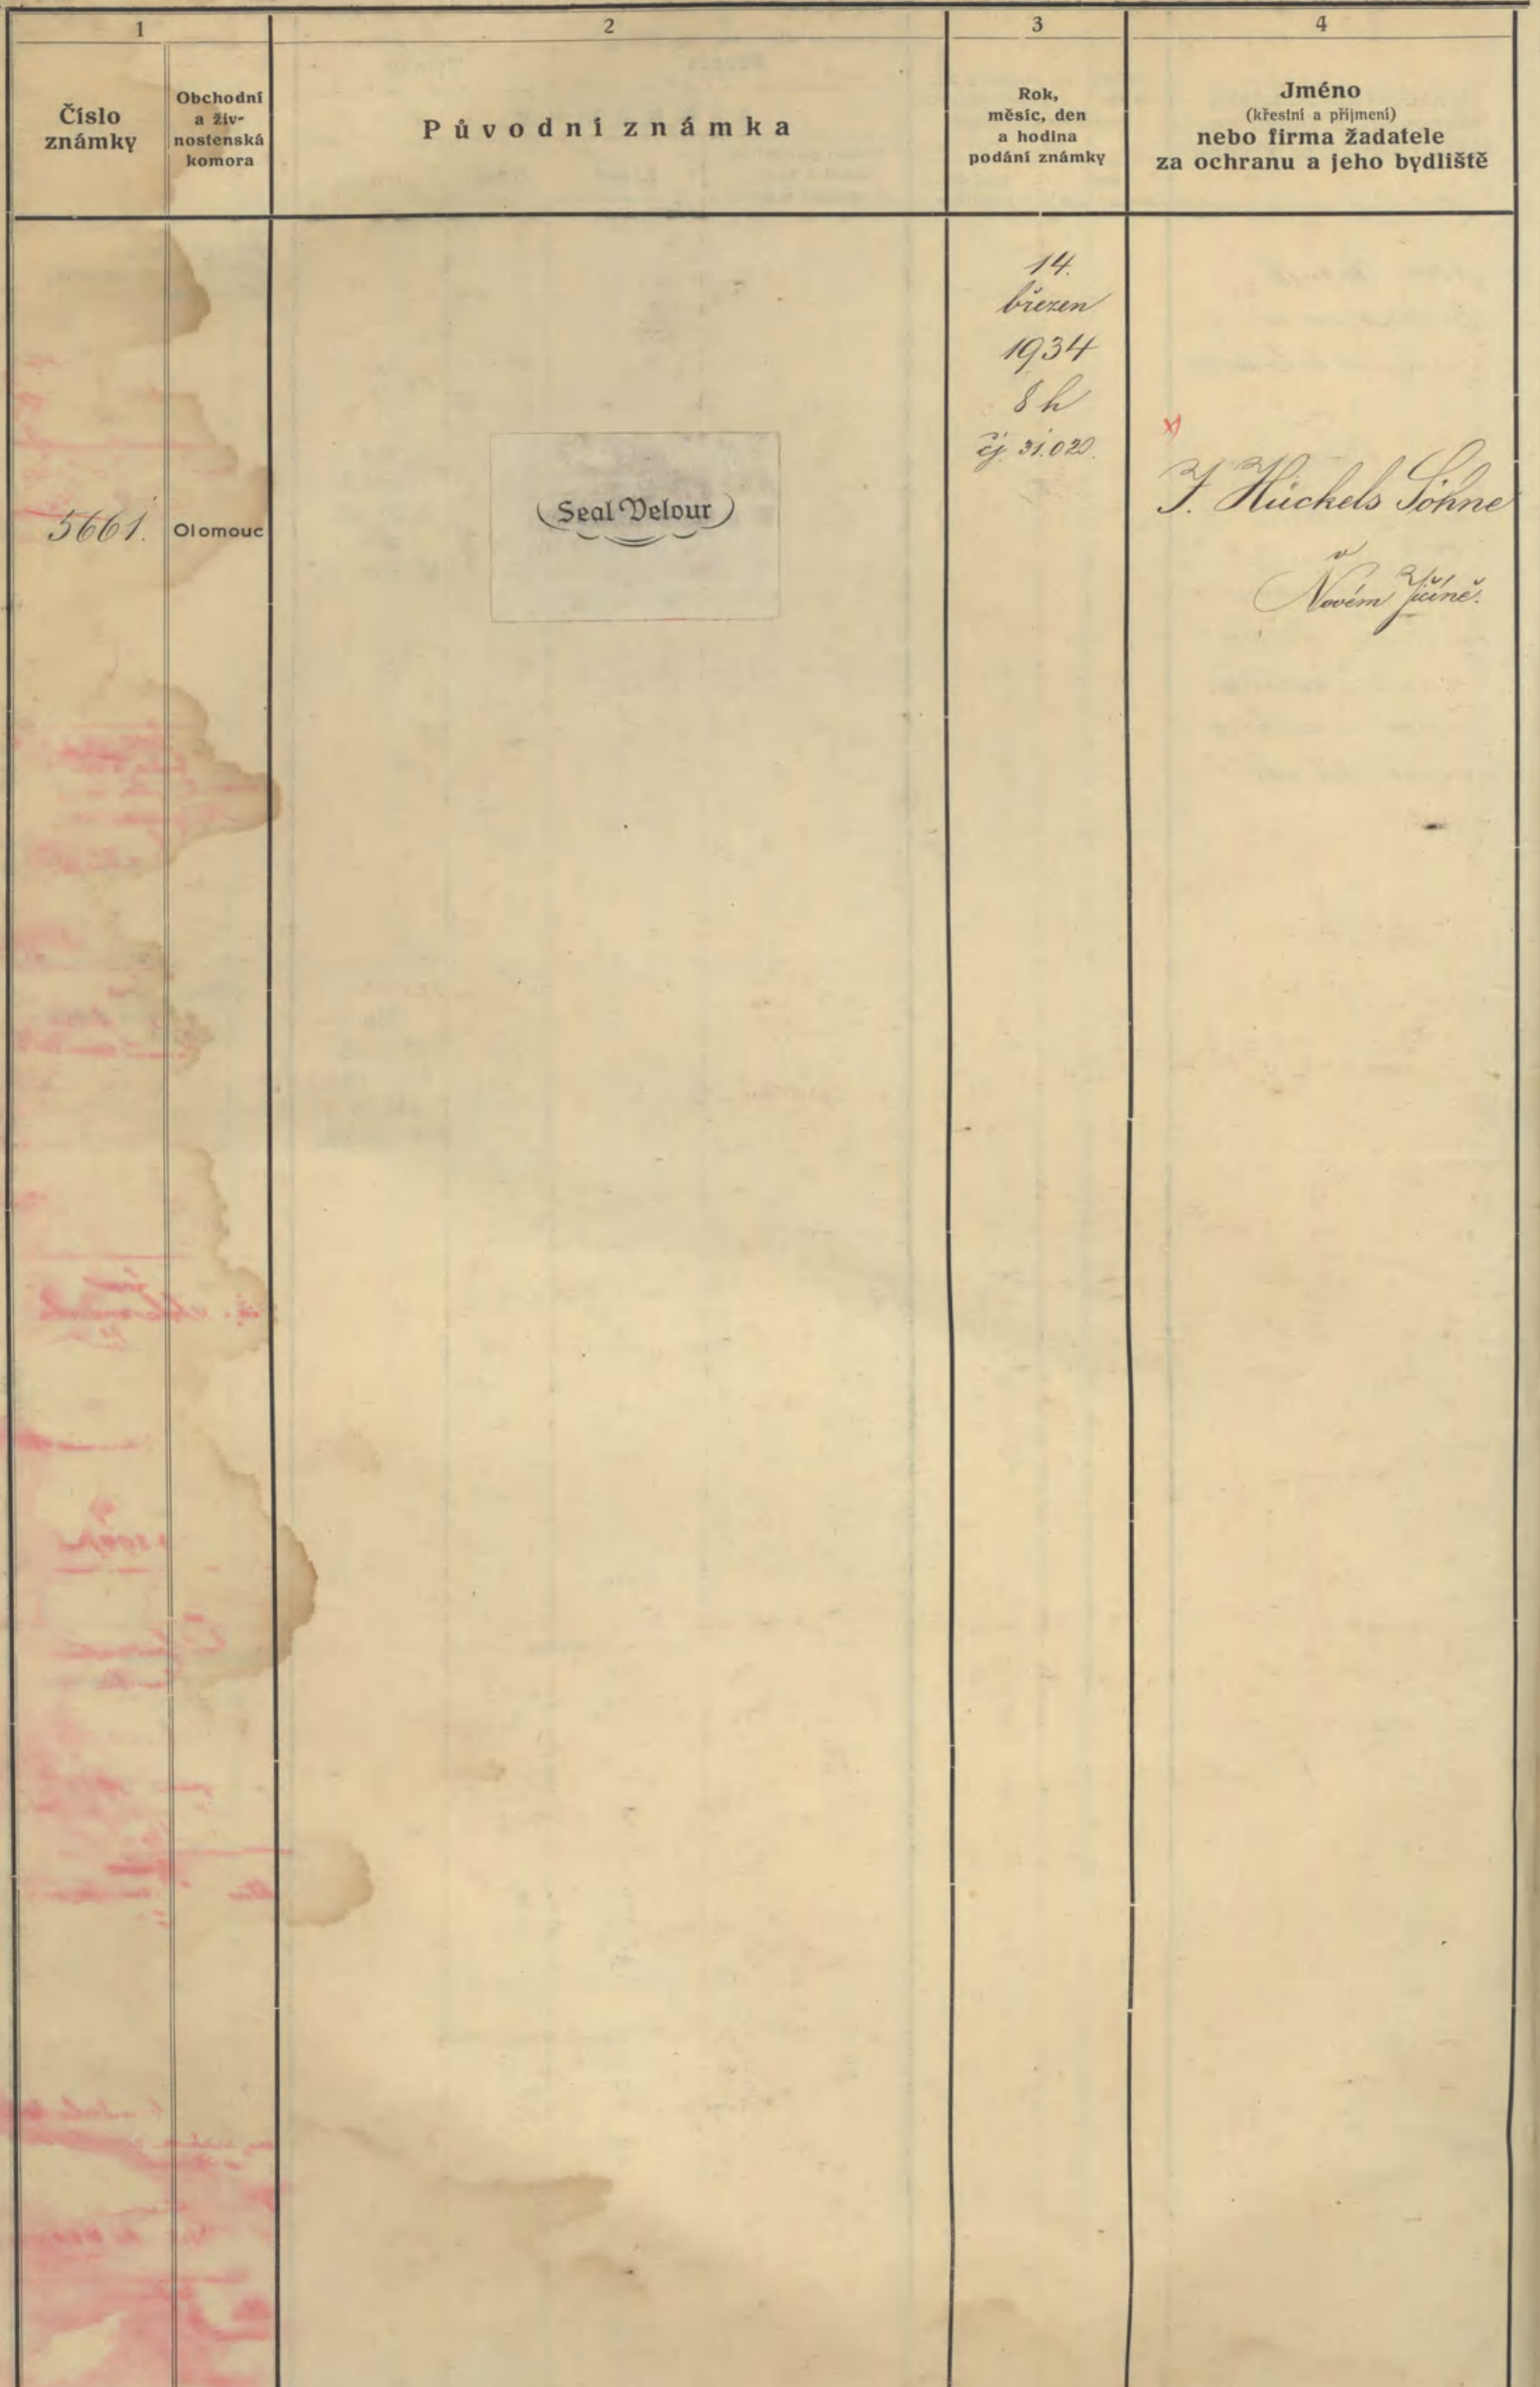 1
2
3
4
Číslo
známky
Obchodní
a živ-
nostenská
komora
Původní známka
Rok,
měsíc, den
a hodina
podání známky
Jméno
(křestní a příjmení)
nebo firma žadatele
za ochranu a jeho bydliště
5661.
Olomouc
(Seal Velour)
14.
březen
1934
8 h
čj. 31.020.
x)
J. Hückels Söhne
v
Novém Jičíně.